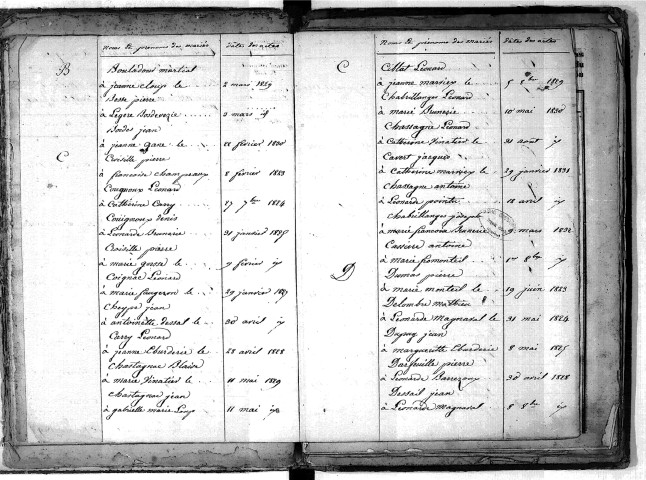 Noms & prénoms des mariés
dates des actes
B
Bouladoux martial
à jeanne Loup le 2 mars 1819
Besse pierre
à Legere 3 mars
Bordes jean
à jeanne le 22 février 1820
C
Croisille pierre
à francoise champeaux 8 février 1823
Couqnoux Léonard
à Catherine Carry 17 7bre 1824
denis
à Léonarde Brunerie 31 janvier 1825
Croisille pierre
à marie gorsse le 9 février
Coignac Léonard
à marie faugeron le 29 janvier 1827
Cheype jean
à antoinette dessal le 30 avril
Carry Léonard
à jeanne Eburderie le 28 avril 1828
Chastagnac Blaise
à marie Vinatier le 11 mai 1829
Chastagnac jean
à gabrielle marie Loup 11 mai
Noms & prénoms des mariés
dates des actes
C
Léonard
à jeanne le 5 1829
Chabrillanges Léonard
à marie Brunerie 10 mai 1830
Chassagne Léonard
à Catherine Vinatier le 31 août
Cavert jacques
à Catherine le 29 janvier 1831
Chassagne antoine
à Léonarde pointe 18 avril
Chabrillanges joseph
à marie francoise Brunerie 9 mars 1832
Cassière antoine
à marie fromonteil 8bre
D
Dumas pierre
à marie monteil le 19 juin 1823
Delombre mathieu
à Léonarde Magnaval le 31 mai 1824
Dupuy jean
à marguerite Eburderie 8 mai 1825
Darfeuille pierre
à Léonarde Barrezoux 30 avril 1828
Dessail jean
à Léonarde Magnaval 8 8bre